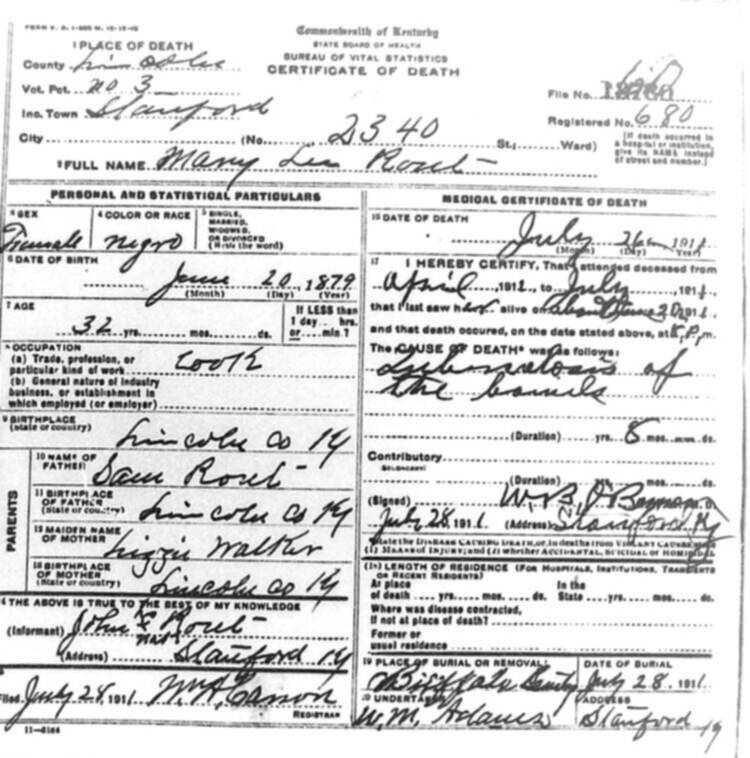 Commonwealth of Kentucky
STATE BOARD OF HEALTH
BUREAU OF VITAL STATISTICS
CERTIFICATE OF DEATH
1 PLACE OF DEATH
County Lincoln
Vot. Pct. no 3
Inc. Town Stanford
City
(No. 2340 St.; Ward)
File No.
Registered No. 680
[If death occurred in a hospital or institution, give its NAME instead of street and number.]
2 FULL NAME Mary Lee Rout
PERSONAL AND STATISTICAL PARTICULARS
3 SEX Female
4 COLOR OR RACE negro
5 SINGLE, MARRIED, WIDOWED, OR DIVORCED (Write the word)
6 DATE OF BIRTH
June 20, 1879
(Month) (Day) (Year)
7 AGE
32 yrs. mos. ds.
If LESS than 1 day hrs. or min?
8 OCCUPATION
(a) Trade, profession, or particular kind of work Cook
(b) General nature of industry business, or establishment in which employed (or employer)
9 BIRTHPLACE
(State or country) Lincoln Co Ky
PARENTS
10 NAME OF FATHER Sam Rout
11 BIRTHPLACE OF FATHER (State or country) Lincoln Co Ky
12 MAIDEN NAME OF MOTHER Lizzie Walker
13 BIRTHPLACE OF MOTHER (State or country) Lincoln Co Ky
14 THE ABOVE IS TRUE TO THE BEST OF MY KNOWLEDGE
(Informant) John Rout
(Address) Stanford Ky
15
Filed July 28, 1911
REGISTRAR
11-5184
MEDICAL CERTIFICATE OF DEATH
16 DATE OF DEATH
July 26, 1911
(Month) (Day) (Year)
17 I HEREBY CERTIFY, That I attended deceased from
April, 1911, to July, 1911
that I last saw her alive on about June 20, 1911
and that death occured, on the date stated above, at 8, P. m.
The CAUSE OF DEATH* was as follows:
Tuberculosis of
the bowels
(Duration) yrs. 8 mos. ds.
Contributory
SECONDARY
(Duration) yrs. mos. ds.
(Signed) W. B. O'Bannon M. D.
July 28, 1911 (Address) Stanford Ky
*State the DISEASE CAUSING DEATH, or, in deaths from VIOLENT CAUSES, state
(1) MEANS OF INJURY; and (2) whether ACCIDENTAL, SUICIDAL or HOMICIDAL
18 LENGTH OF RESIDENCE (FOR HOSPITALS, INSTITUTIONS, TRANSIENTS OR RECENT RESIDENTS)
At place of death yrs. mos. ds. In the State yrs. mos. ds.
Where was disease contracted,
If not at place of death?
Former or
usual residence
19 PLACE OF BURIAL OR REMOVAL DATE OF BURIAL
Buffalo July 28, 1911
20 UNDERTAKER ADDRESS
W. M. Adams Stanford Ky